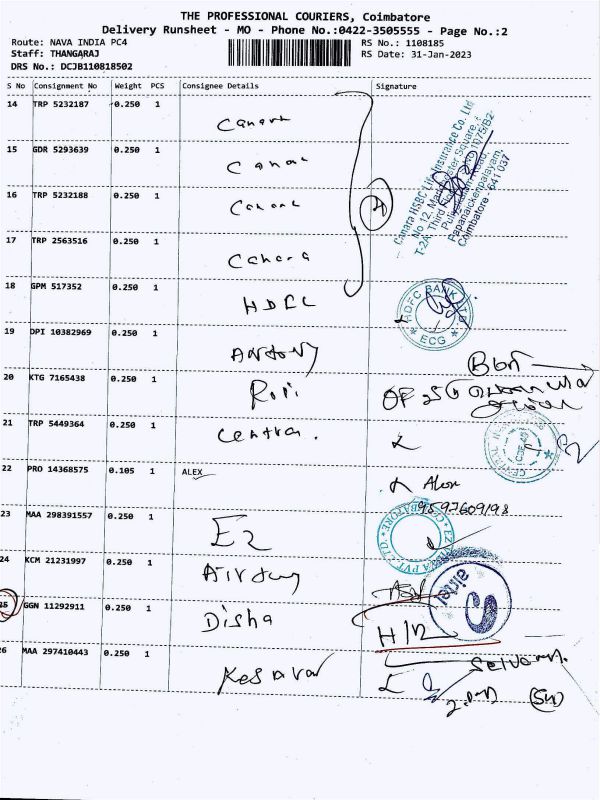 THE PROFESSIONAL COURIERS, Coimbatore
Delivery Runsheet - MO - Phone No.:0422-3505555 - Page No.:2
Route: NAVA INDIA PC4
RS No.: 1108185
Staff: THANGARAJ
RS Date: 31-Jan-2023
DRS No.: DCJB110818502
S No Consignment No Weight PCS Consignee Details Signature
14 TRP 5232187 0.250 1 Canara
15 GDR 5293639 0.250 1 Canara
16 TRP 5232188 0.250 1 Canara
17 TRP 2563516 0.250 1 Canara
Canara HSBC Life Insurance Co. Ltd
No 12, Manchester Square,
Third Floor
Papanaickenpalayam,
Coimbatore - 641 037
18 GPM 517352 0.250 1 HDFC
HDFC BANK LTD
ECG
19 DPI 10382969 0.250 1 Antony
20 KTG 7165438 0.250 1
21 TRP 5449364 0.250 1 Centra.
22 PRO 14368575 0.105 1 ALEX Alex
9597609198
23 MAA 298391557 0.250 1 E2
24 KCM 21231997 0.250 1
airtel
25 GGN 11292911 0.250 1 Disha H/R
26 MAA 297410443 0.250 1 Kesavar Selvam.